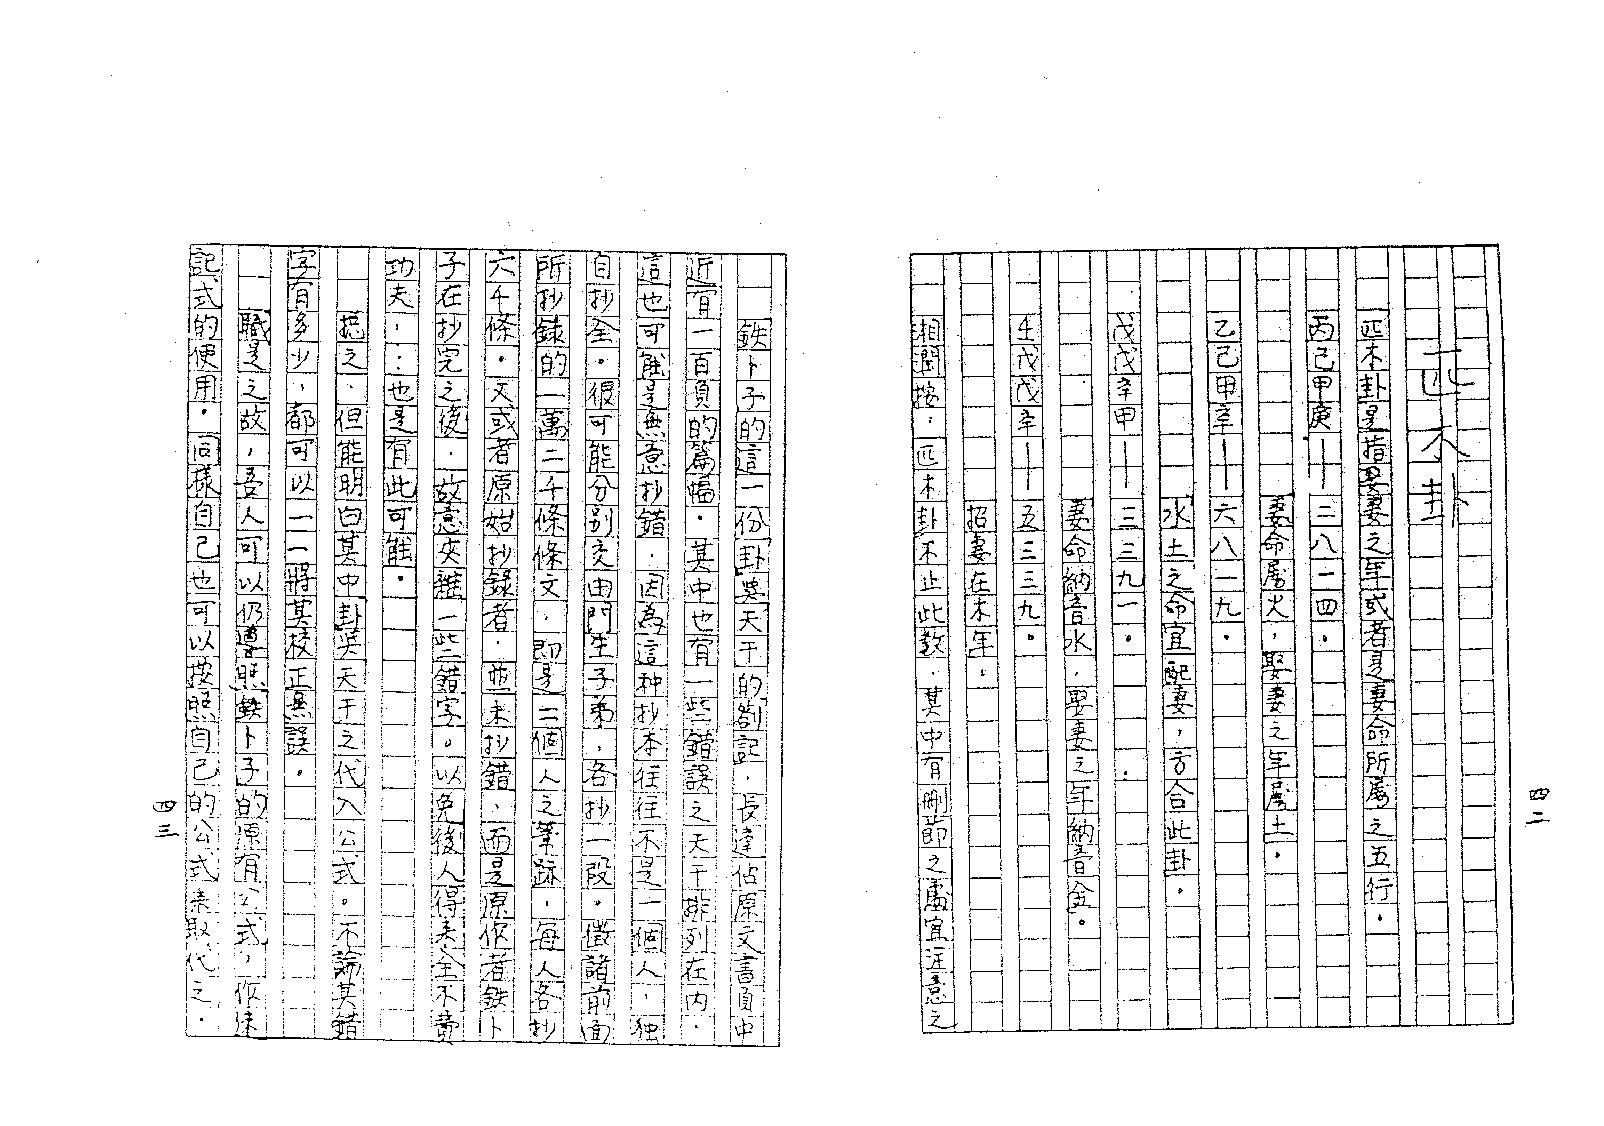 匹木卦
匹木卦是指娶妻之年或者是妻命所屬之五行。
丙己甲庚——二八一四。
妻命屬火，娶妻之年屬土。
乙己甲辛——六八一九。
水土之命宜配妻，方合此卦。
戊戊辛甲——三三九一。
妻命納音水，娶妻之年納音金。
壬戊戊辛——五三三九。
招妻在木年。
湘潤按，匹木卦不止此数，其中有刪節之處宜注意之
四二
鉄卜子的這一份卦與天干的劄記，長達佔原文書頁中
近有一百頁的篇幅。其中也有一些錯誤之天干排列在內，
這也可能是無意抄錯，因為這种抄本往往不是一個人，独
自抄全。很可能分別交由門生子弟，各抄一段。徵諸前面
所抄録的一萬二千條條文，即是二個人之筆跡，每人各抄
六千條。又或者原始抄録者，並未抄錯，而是原作者鉄卜
子在抄完之後，故意夾雜一些錯字。以免後人得來全不費
功夫，：也是有此可能。
摠之，但能明白其中卦與天干之代入公式。不論其錯
字有多少，都可以一一將其校正無誤。
職是之故，吾人可以仍遵照鉄卜子的原有公式，作速
記式的使用。同樣自己也可以按照自己的公式來取代之。
四三